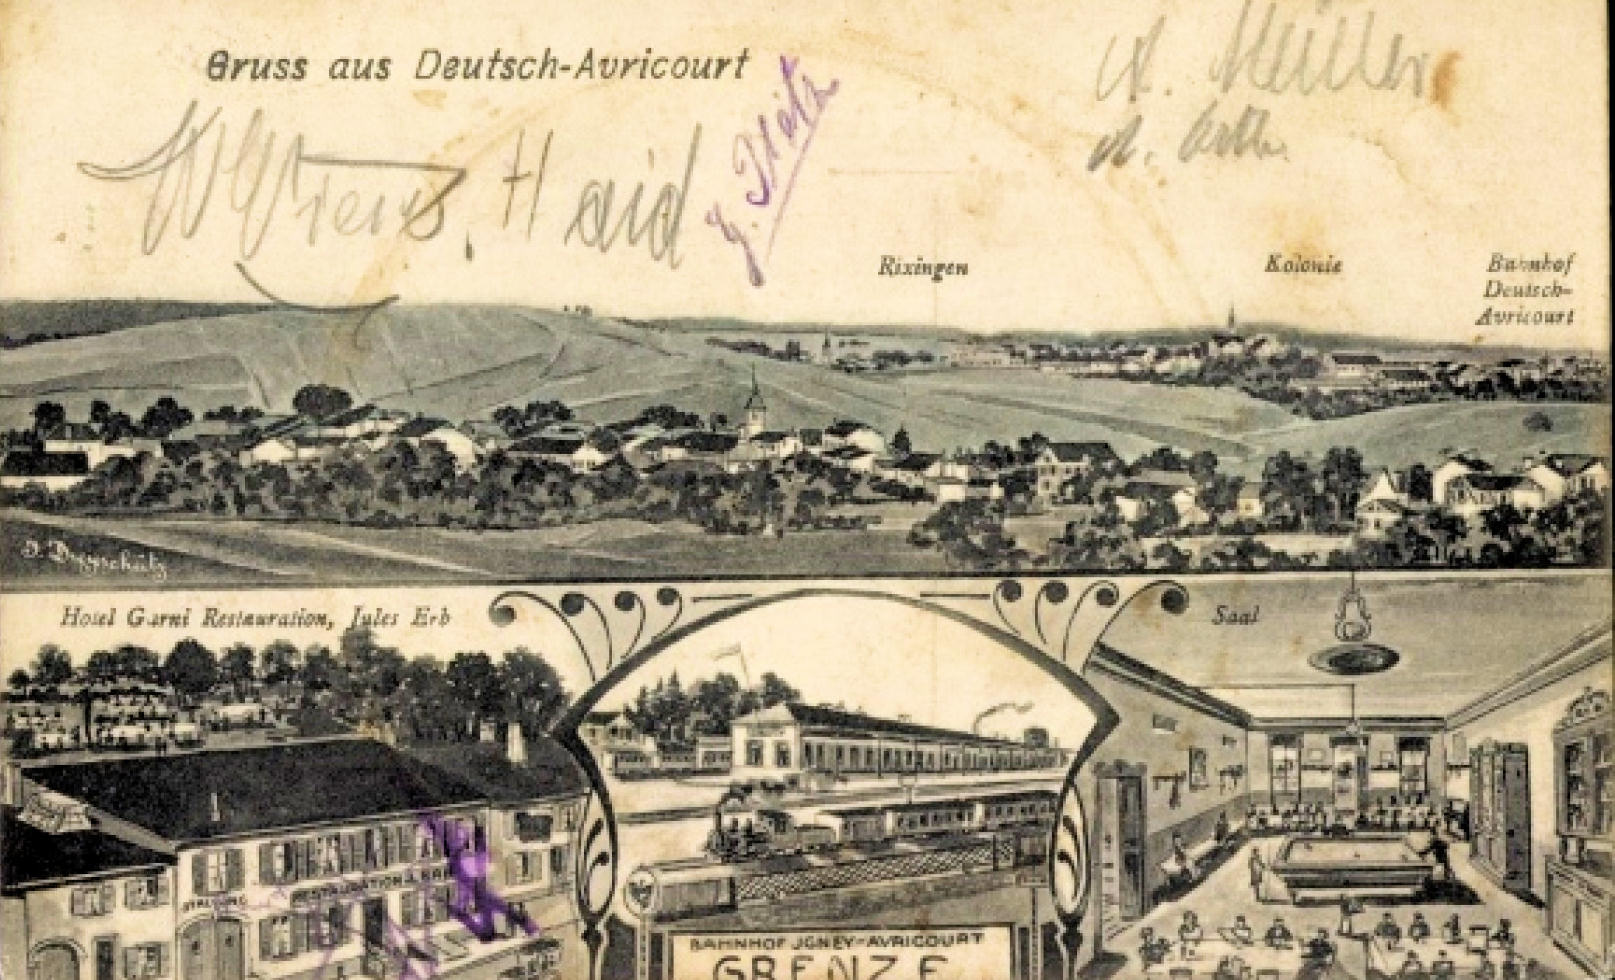 Gruss aus Deutsch-Avricourt
A. Müller
Haid
Rixingen
Kolonie
Bahnhof
Deutsch-
Avricourt
Hotel Garni Restauration, Jules Erb
Saal
STALLUNG
RESTAURATION
BAHNHOF JGNEY-AVRICOURT
GRENZE